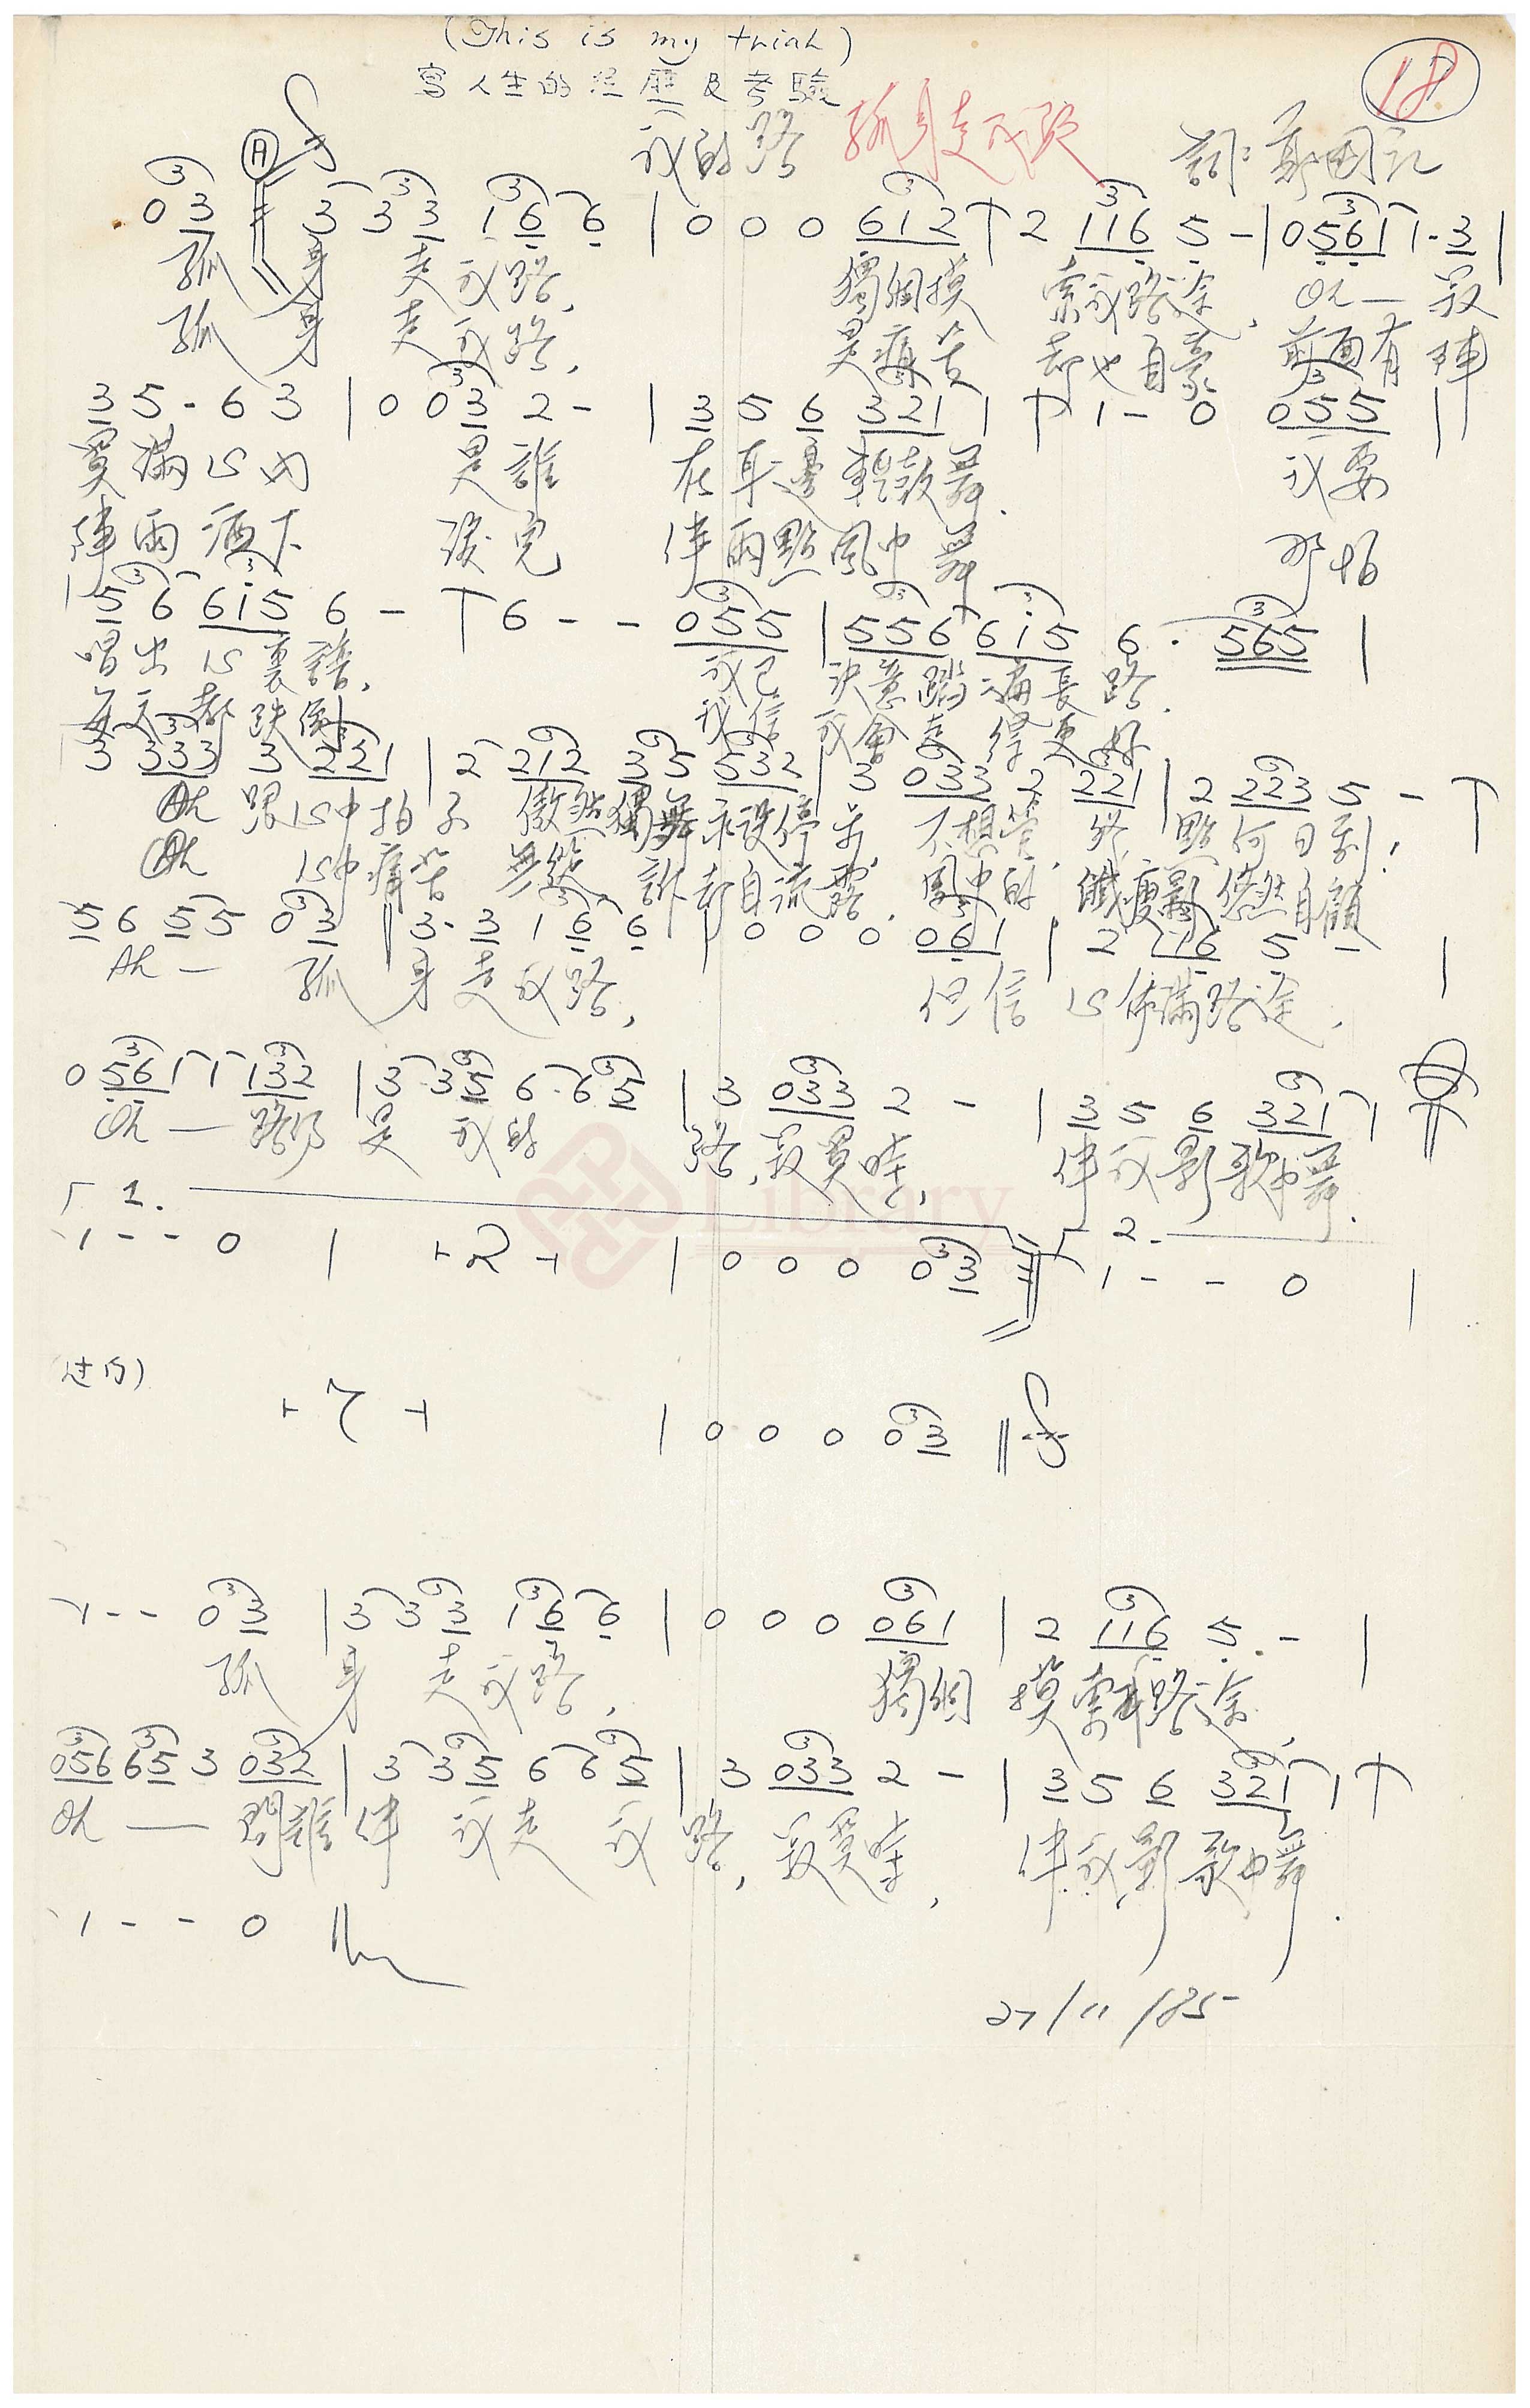 (This is my trial)
寫人生的經歷及考驗
18
我的路 孤身走我路 詞: 鄭國江
A
0 3 3 3 3 1 6 6 | 0 0 0 6 1 2 | 2 1 1 6 5 - | 0 5 6 1 1 . 3 |
孤 身 走 我路, 獨個摸 索我路途, Oh — 寂
孤 身 走 我路, 是痛苦 却也自豪 前面有 陣
3 5 - 6 3 | 0 0 3 2 - | 3 5 6 3 2 1 1 | 1 - 0 0 5 5 |
寞滿心內 是誰 在耳邊輕鼓舞. 我要
陣雨洒下 淚兒 伴雨點風中舞 那怕
5 6 6 1 5 6 - | 6 - - 0 5 5 | 5 5 6 6 1 5 6 . 5 6 5 |
唱出心裏譜, 我已 決意踏遍長路.
每天都跌倒 我信 我會走得更好
3 3 3 3 3 2 2 1 | 2 2 1 2 3 5 5 3 2 | 3 0 3 3 2 2 2 1 | 2 2 2 3 5 - |
Ah 跟心中拍子 傲然獨舞未設停步, 不想管, 終點何日到!
Ah 心中痛苦 無從訴却自流露. 風中的 纖瘦影悠然自顧
5 6 5 5 0 3 | 3 . 3 1 6 6 | 0 0 0 0 6 1 | 2 1 1 6 5 - |
Ah — 孤 身走我路, 但信 心佈滿路途,
0 5 6 1 1 1 3 2 | 3 . 3 5 6 . 6 5 | 3 0 3 3 2 - | 3 5 6 3 2 1 1 |
Oh — 路仍 是 我的 路, 寂寞時, 伴我影歌中舞.
1.
1 - - 0 | 2 | 0 0 0 0 3 | 2. 1 - - 0 |
(过门)
7 | 0 0 0 0 3 ||
1 - - 0 3 | 3 3 3 1 6 6 | 0 0 0 0 6 1 | 2 1 1 6 5 . - |
孤 身 走我路, 獨個 摸索我路途,
0 5 6 6 5 3 0 3 2 | 3 3 5 6 6 5 | 3 0 3 3 2 - | 3 5 6 3 2 1 1 |
Oh — 問誰伴 我走 我 路, 寂寞時, 伴我影歌中舞.
1 - - 0 ||
27/11/85
Library